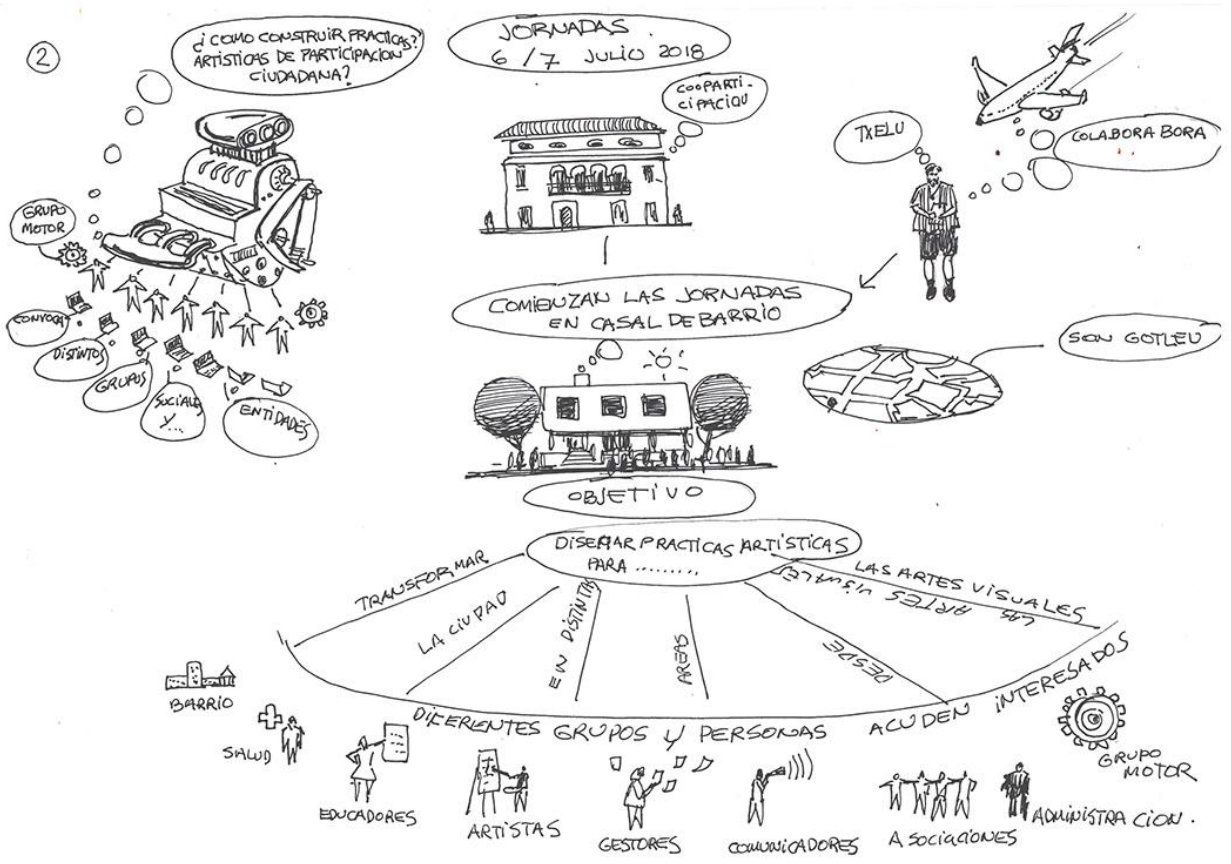 2
¿COMO CONSTRUIR PRACTICAS?
ARTÍSTICAS DE PARTICIPACION
CIUDADANA?
JORNADAS.
6 / 7 JULIO 2018
COOPARTI-
CIPACION
TXELU
COLABORA BORA
GRUPO
MOTOR
CONVOCA
DISTINTOS
GRUPOS
SOCIALES
Y...
ENTIDADES
COMIENZAN LAS JORNADAS
EN CASAL DE BARRIO
SON GOTLEU
OBJETIVO
DISEÑAR PRACTICAS ARTÍSTICAS
PARA .........
TRANSFORMAR
LA CIUDAD
EN DISTINTAS
AREAS
DESDE
LAS ARTES VISUALES
LAS ARTES VISUALES
DIFERENTES GRUPOS Y PERSONAS ACUDEN INTERESADOS
BARRIO
SALUD
EDUCADORES
ARTISTAS
GESTORES
COMUNICADORES
ASOCIACIONES
ADMINISTRACION.
GRUPO
MOTOR